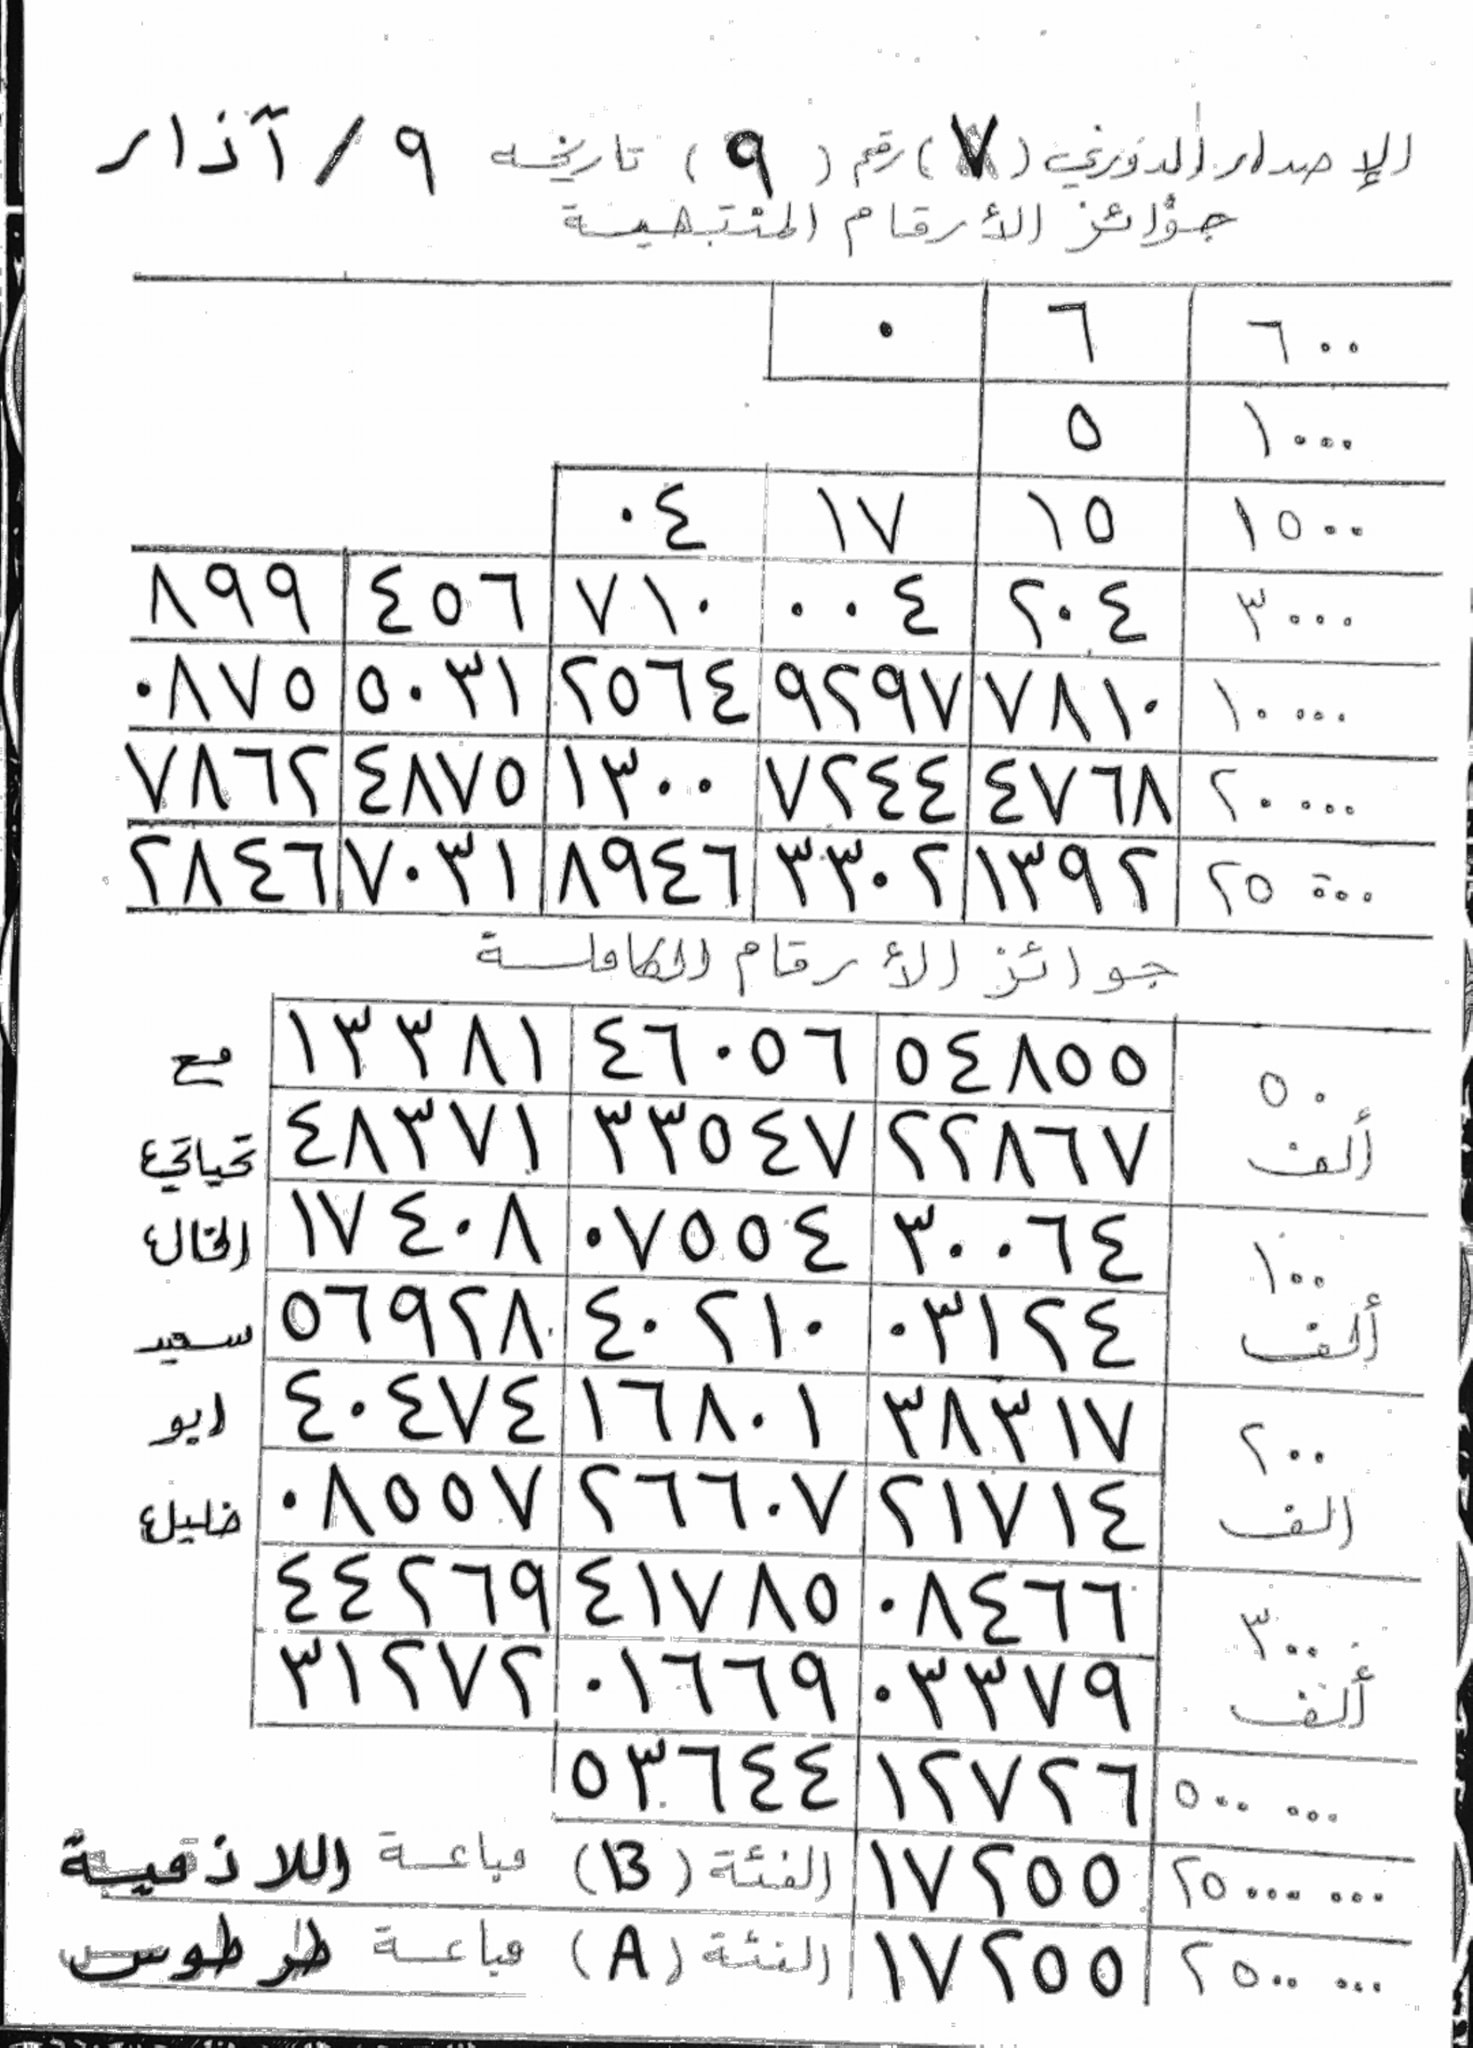 الإصدار الدوري (٧) رقم (٩) تاريخ ٩/آذار
جوائز الأرقام المنتهية
٦٠٠ ٦ ٠
١٠٠٠ ٥
١٥٠٠ ١٥ ١٧ ٠٤
٣٠٠٠ ٢٠٤ ٠٠٤ ٧١٠ ٤٥٦ ٨٩٩
١٠٠٠٠ ٧٨١٠ ٩٢٩٧ ٢٥٦٤ ٥٠٣١ ٠٨٧٥
٢٠٠٠٠ ٤٧٦٨ ٧٢٤٤ ١٣٠٠ ٤٨٧٥ ٧٨٦٢
٢٥٠٠٠ ١٣٩٢ ٣٣٠٢ ٨٩٤٦ ٧٠٣١ ٢٨٤٦
جوائز الأرقام الكاملة
٥٠ ٥٤٨٥٥ ٤٦٠٥٦ ١٣٣٨١ مع
ألف ٢٢٨٦٧ ٣٣٥٤٧ ٤٨٣٧١ تحياتي
١٠٠ ٣٠٠٦٤ ٠٧٥٥٤ ١٧٤٠٨ الخال
ألف ٠٣١٢٤ ٤٠٢١٠ ٥٦٩٢٨ سعيد
٢٠٠ ٣٨٣١٧ ١٦٨٠١ ٤٠٤٧٤ ابو
الف ٢١٧١٤ ٢٦٦٠٧ ٠٨٥٥٧ خليل
٣٠٠ ٠٨٤٦٦ ٤١٧٨٥ ٤٤٢٦٩
ألف ٠٣٣٧٩ ٠١٦٦٩ ٣١٢٧٢
٥٠٠٠٠٠ ١٢٧٢٦ ٥٣٦٤٤
٢٥٠٠٠٠٠٠ ١٧٢٥٥ الفئة (B) مباعة اللاذقية
٢٥٠٠٠٠٠ ١٧٢٥٥ الفئة (A) مباعة طرطوس